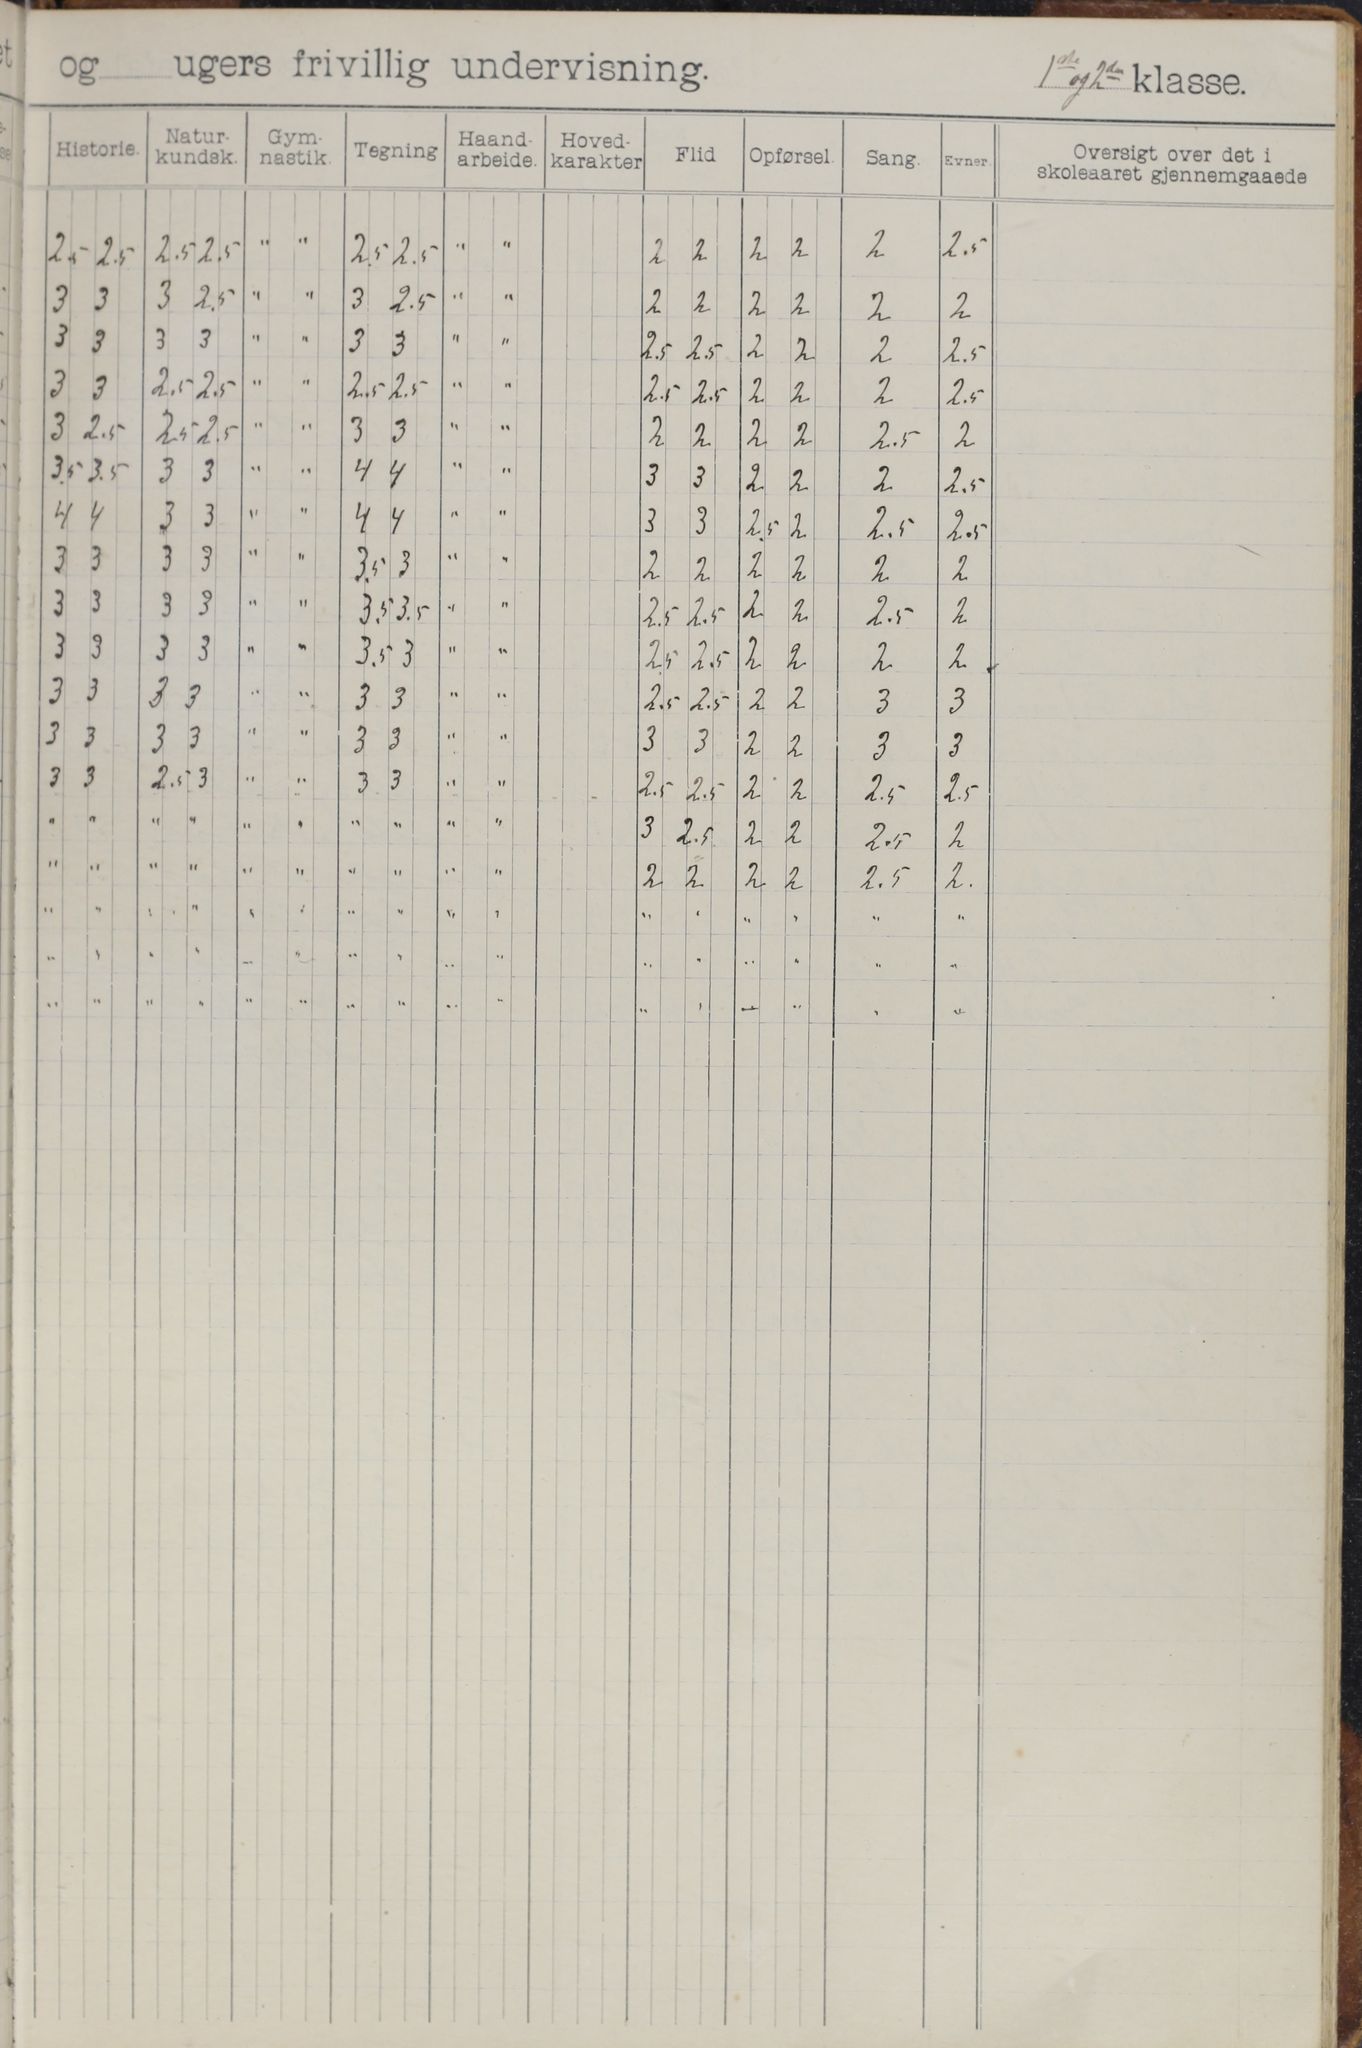 og ugers frivillig undervisning. 1ste og 2den klasse.
Historie. Natur-kundsk. Gym-nastik. Tegning Haand-arbeide. Hoved-karakter Flid Opførsel. Sang. Evner. Oversigt over det i skoleaaret gjennemgaaede
2.5 2.5 2.5 2.5 " " 2.5 2.5 " " 2 2 2 2 2 2.5
3 3 3 2.5 " " 3 2.5 " " 2 2 2 2 2 2
3 3 3 3 " " 3 3 " " 2.5 2.5 2 2 2 2.5
3 3 2.5 2.5 " " 2.5 2.5 " " 2.5 2.5 2 2 2 2.5
3 2.5 2.5 2.5 " " 3 3 " " 2 2 2 2 2.5 2
3.5 3.5 3 3 " " 4 4 " " 3 3 2 2 2 2.5
4 4 3 3 " " 4 4 " " 3 3 2.5 2 2.5 2.5
3 3 3 3 " " 3.5 3 " " 2 2 2 2 2 2
3 3 3 3 " " 3.5 3.5 " " 2.5 2.5 2 2 2.5 2
3 3 3 3 " " 3.5 3 " " 2.5 2.5 2 2 2 2
3 3 3 3 " " 3 3 " " 2.5 2.5 2 2 3 3
3 3 3 3 " " 3 3 " " 3 3 2 2 3 3
3 3 2.5 3 " " 3 3 " " 2.5 2.5 2 2 2.5 2.5
" " " " " " " " " " 3 2.5 2 2 2.5 2
" " " " " " " " " " 2 2 2 2 2.5 2.
" " " " " " " " " " " " " " " "
" " " " " " " " " " " " " " " "
" " " " " " " " " " " " " " " "